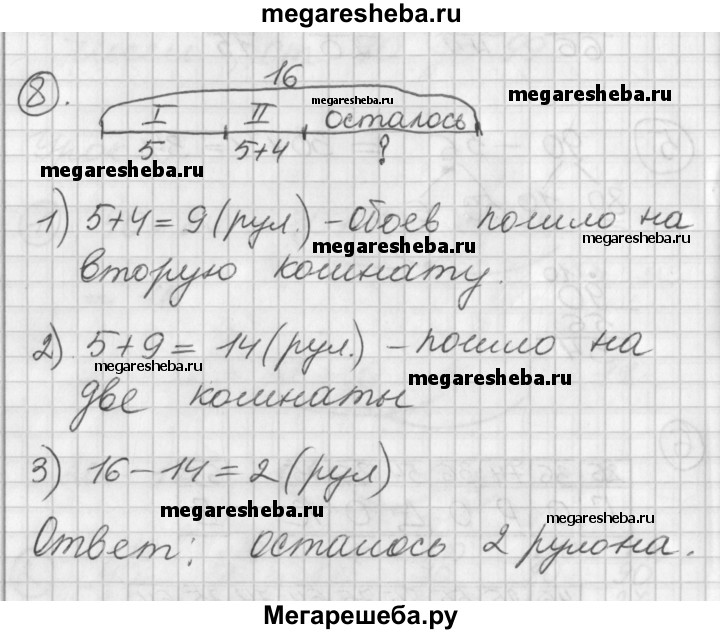 megaresheba.ru
8.
16
megaresheba.ru
megaresheba.ru
I II осталось
5 5+4 ?
megaresheba.ru
1) 5+4=9(рул.) – обоев пошло на
megaresheba.ru
megaresheba.ru
вторую комнату.
2) 5+9= 14(рул.) – пошло на
megaresheba.ru
megaresheba.ru
две комнаты
3) 16-14=2(рул)
megaresheba.ru
megaresheba.ru
Ответ: осталось 2 рулона.
Мегарешеба.ру